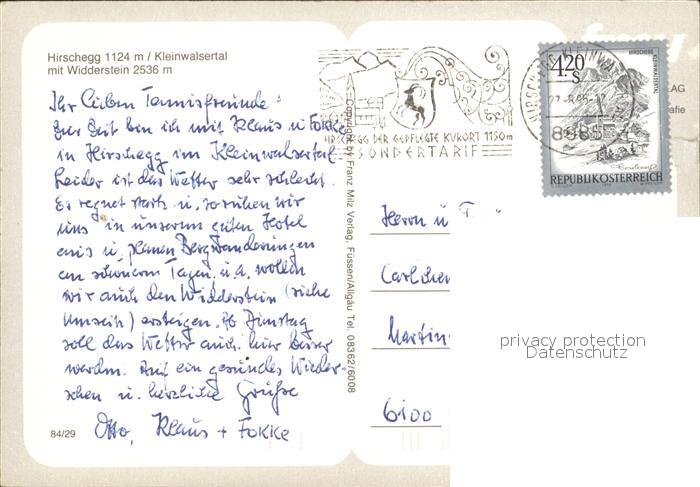 Hirschegg 1124 m / Kleinwalsertal
mit Widderstein 2536 m
Ihr lieben Tennisfreunde!
Zur Zeit bin ich mit Klaus u Fokke
in Hirschegg im Kleinwalsertal.
Leider ist das Wetter sehr schlecht.
Es regnet stark u. so ruhen wir
uns in unserem guten Hotel
aus u. planen Bergwanderungen
an schönern Tagen. u.a. wollen
wir auch den Widderstein (siehe
Umseite) ersteigen. Ab Dienstag
soll das Wetter auch hier besser
werden. Auf ein gesundes Wieder-
sehen u. herzliche Grüße
Otto, Klaus + Fokke
84/29
Copyright by Franz Milz Verlag, Füssen/Allgäu Tel. 08362/6008
HIRSCHEGG DER GEPFLEGTE KURORT 1150m
SONDERTARIF
4.20
S
HIRSCHEGG
KLEINWALSERTAL
REPUBLIK ÖSTERREICH
Herrn u
6100
AG
afie
privacy protection
Datenschutz